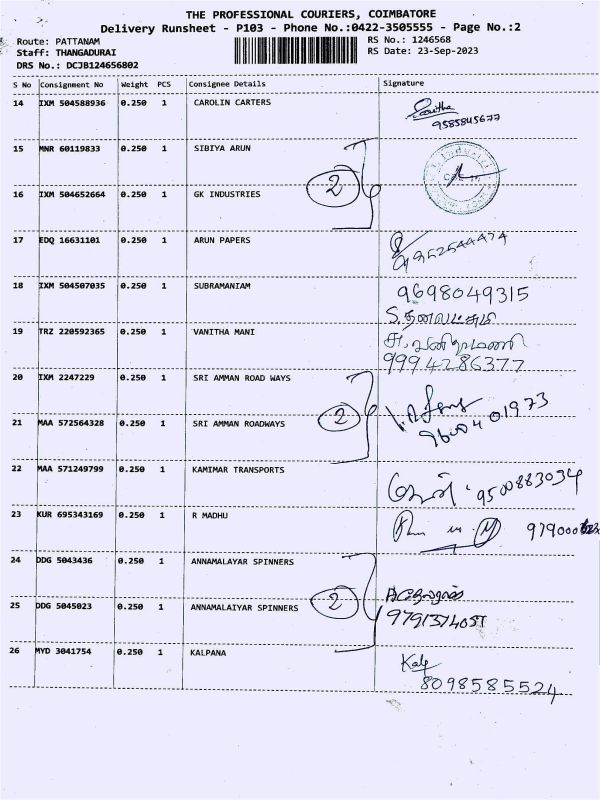 THE PROFESSIONAL COURIERS, COIMBATORE
Delivery Runsheet - P103 - Phone No.:0422-3505555 - Page No.:2
Route: PATTANAM
Staff: THANGADURAI
DRS No.: DCJB124656802
RS No.: 1246568
RS Date: 23-Sep-2023
S No Consignment No Weight PCS Consignee Details Signature
14 IXM 504588936 0.250 1 CAROLIN CARTERS
9585845677
15 MNR 60119833 0.250 1 SIBIYA ARUN
2
16 IXM 504652664 0.250 1 GK INDUSTRIES
17 EDQ 16631101 0.250 1 ARUN PAPERS
18 IXM 504507035 0.250 1 SUBRAMANIAM 9698049315
S. தனலட்சுமி
19 TRZ 220592365 0.250 1 VANITHA MANI
9994286377
20 IXM 2247229 0.250 1 SRI AMMAN ROAD WAYS
2
21 MAA 572564328 0.250 1 SRI AMMAN ROADWAYS
22 MAA 571249799 0.250 1 KAMIMAR TRANSPORTS
9500883034
23 KUR 695343169 0.250 1 R MADHU
24 DDG 5043436 0.250 1 ANNAMALAYAR SPINNERS
2
25 DDG 5045023 0.250 1 ANNAMALAIYAR SPINNERS
26 MYD 3041754 0.250 1 KALPANA
8098585524